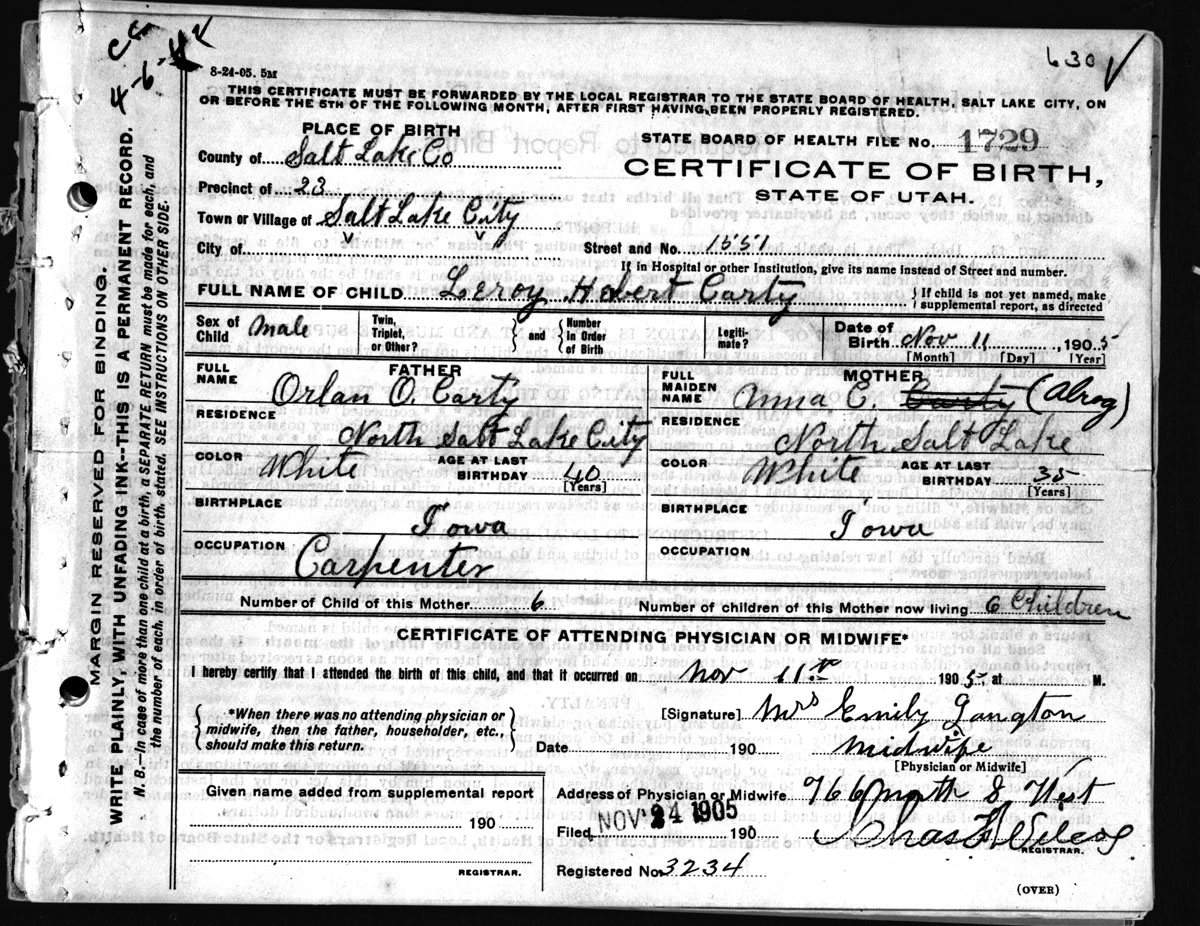 cc
4-6-42
630 ✓
8-24-05. 5M
THIS CERTIFICATE MUST BE FORWARDED BY THE LOCAL REGISTRAR TO THE STATE BOARD OF HEALTH, SALT LAKE CITY, ON
OR BEFORE THE 5TH OF THE FOLLOWING MONTH, AFTER FIRST HAVING BEEN PROPERLY REGISTERED.
PLACE OF BIRTH
STATE BOARD OF HEALTH FILE NO. 1729
County of Salt Lake Co
CERTIFICATE OF BIRTH,
Precinct of 23
STATE OF UTAH.
Town or Village of Salt Lake City
City of
Street and No. 1551
If in Hospital or other Institution, give its name instead of Street and number.
FULL NAME OF CHILD Leroy Hobert Carty
{ If child is not yet named, make
supplemental report, as directed
Sex of Child Male
Twin, Triplet, or Other?
and { Number in Order of Birth
Legitimate?
Date of Birth Nov 11, 1905
[Month] [Day] [Year]
FATHER
FULL NAME Orlan O. Carty
RESIDENCE North Salt Lake City
COLOR White AGE AT LAST BIRTHDAY 40 [Years]
BIRTHPLACE Iowa
OCCUPATION Carpenter
MOTHER
FULL MAIDEN NAME Anna C. Carty
RESIDENCE North Salt Lake
COLOR White AGE AT LAST BIRTHDAY 35 [Years]
BIRTHPLACE Iowa
OCCUPATION
Number of Child of this Mother 6 Number of children of this Mother now living 6 Children
CERTIFICATE OF ATTENDING PHYSICIAN OR MIDWIFE*
I hereby certify that I attended the birth of this child, and that it occurred on Nov 11th 1905 at M.
{ *When there was no attending physician or
midwife, then the father, householder, etc.,
should make this return. }
[Signature] Mrs Emily
Date 190 Midwife
[Physician or Midwife]
Given name added from supplemental report
190
REGISTRAR.
Address of Physician or Midwife 966 North 8 West
Filed NOV 24 1905 190 Chas
REGISTRAR.
Registered No. 3234
(OVER)
MARGIN RESERVED FOR BINDING.
WRITE PLAINLY, WITH UNFADING INK--THIS IS A PERMANENT RECORD.
N. B.—In case of more than one child at a birth, a SEPARATE RETURN must be made for each, and
the number of each, in order of birth, stated. SEE INSTRUCTIONS ON OTHER SIDE.